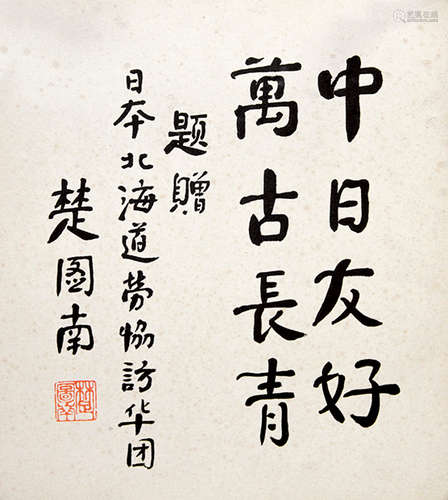 中日友好
萬古長青
题贈
日本北海道劳協訪华团
楚图南